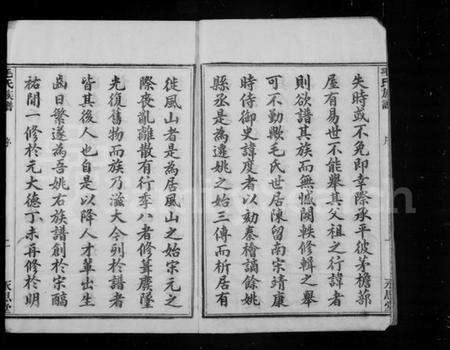 失時或不免即幸際承平彼茅檐蔀
屋有易世不能舉其父祖之行諱者
則欲譜其族而無憾闕軼修輯之舉
可不勤歟毛氏世居陳留南宋靖康
時侍御史諱度者以劾秦檜謫餘姚
縣丞是為遷姚之始三傳而析居有
徙風山者是為居風山之始宋元之
際喪亂離散有行李八者修葺廢墜
光復舊物而族乃滋大今列於譜者
皆其後人也自是以降人才輩出生
齒日繁遂為吾姚右族譜創於宋醕
祐間一修於元大德丁未再修於明
毛氏族譜
序
永思堂